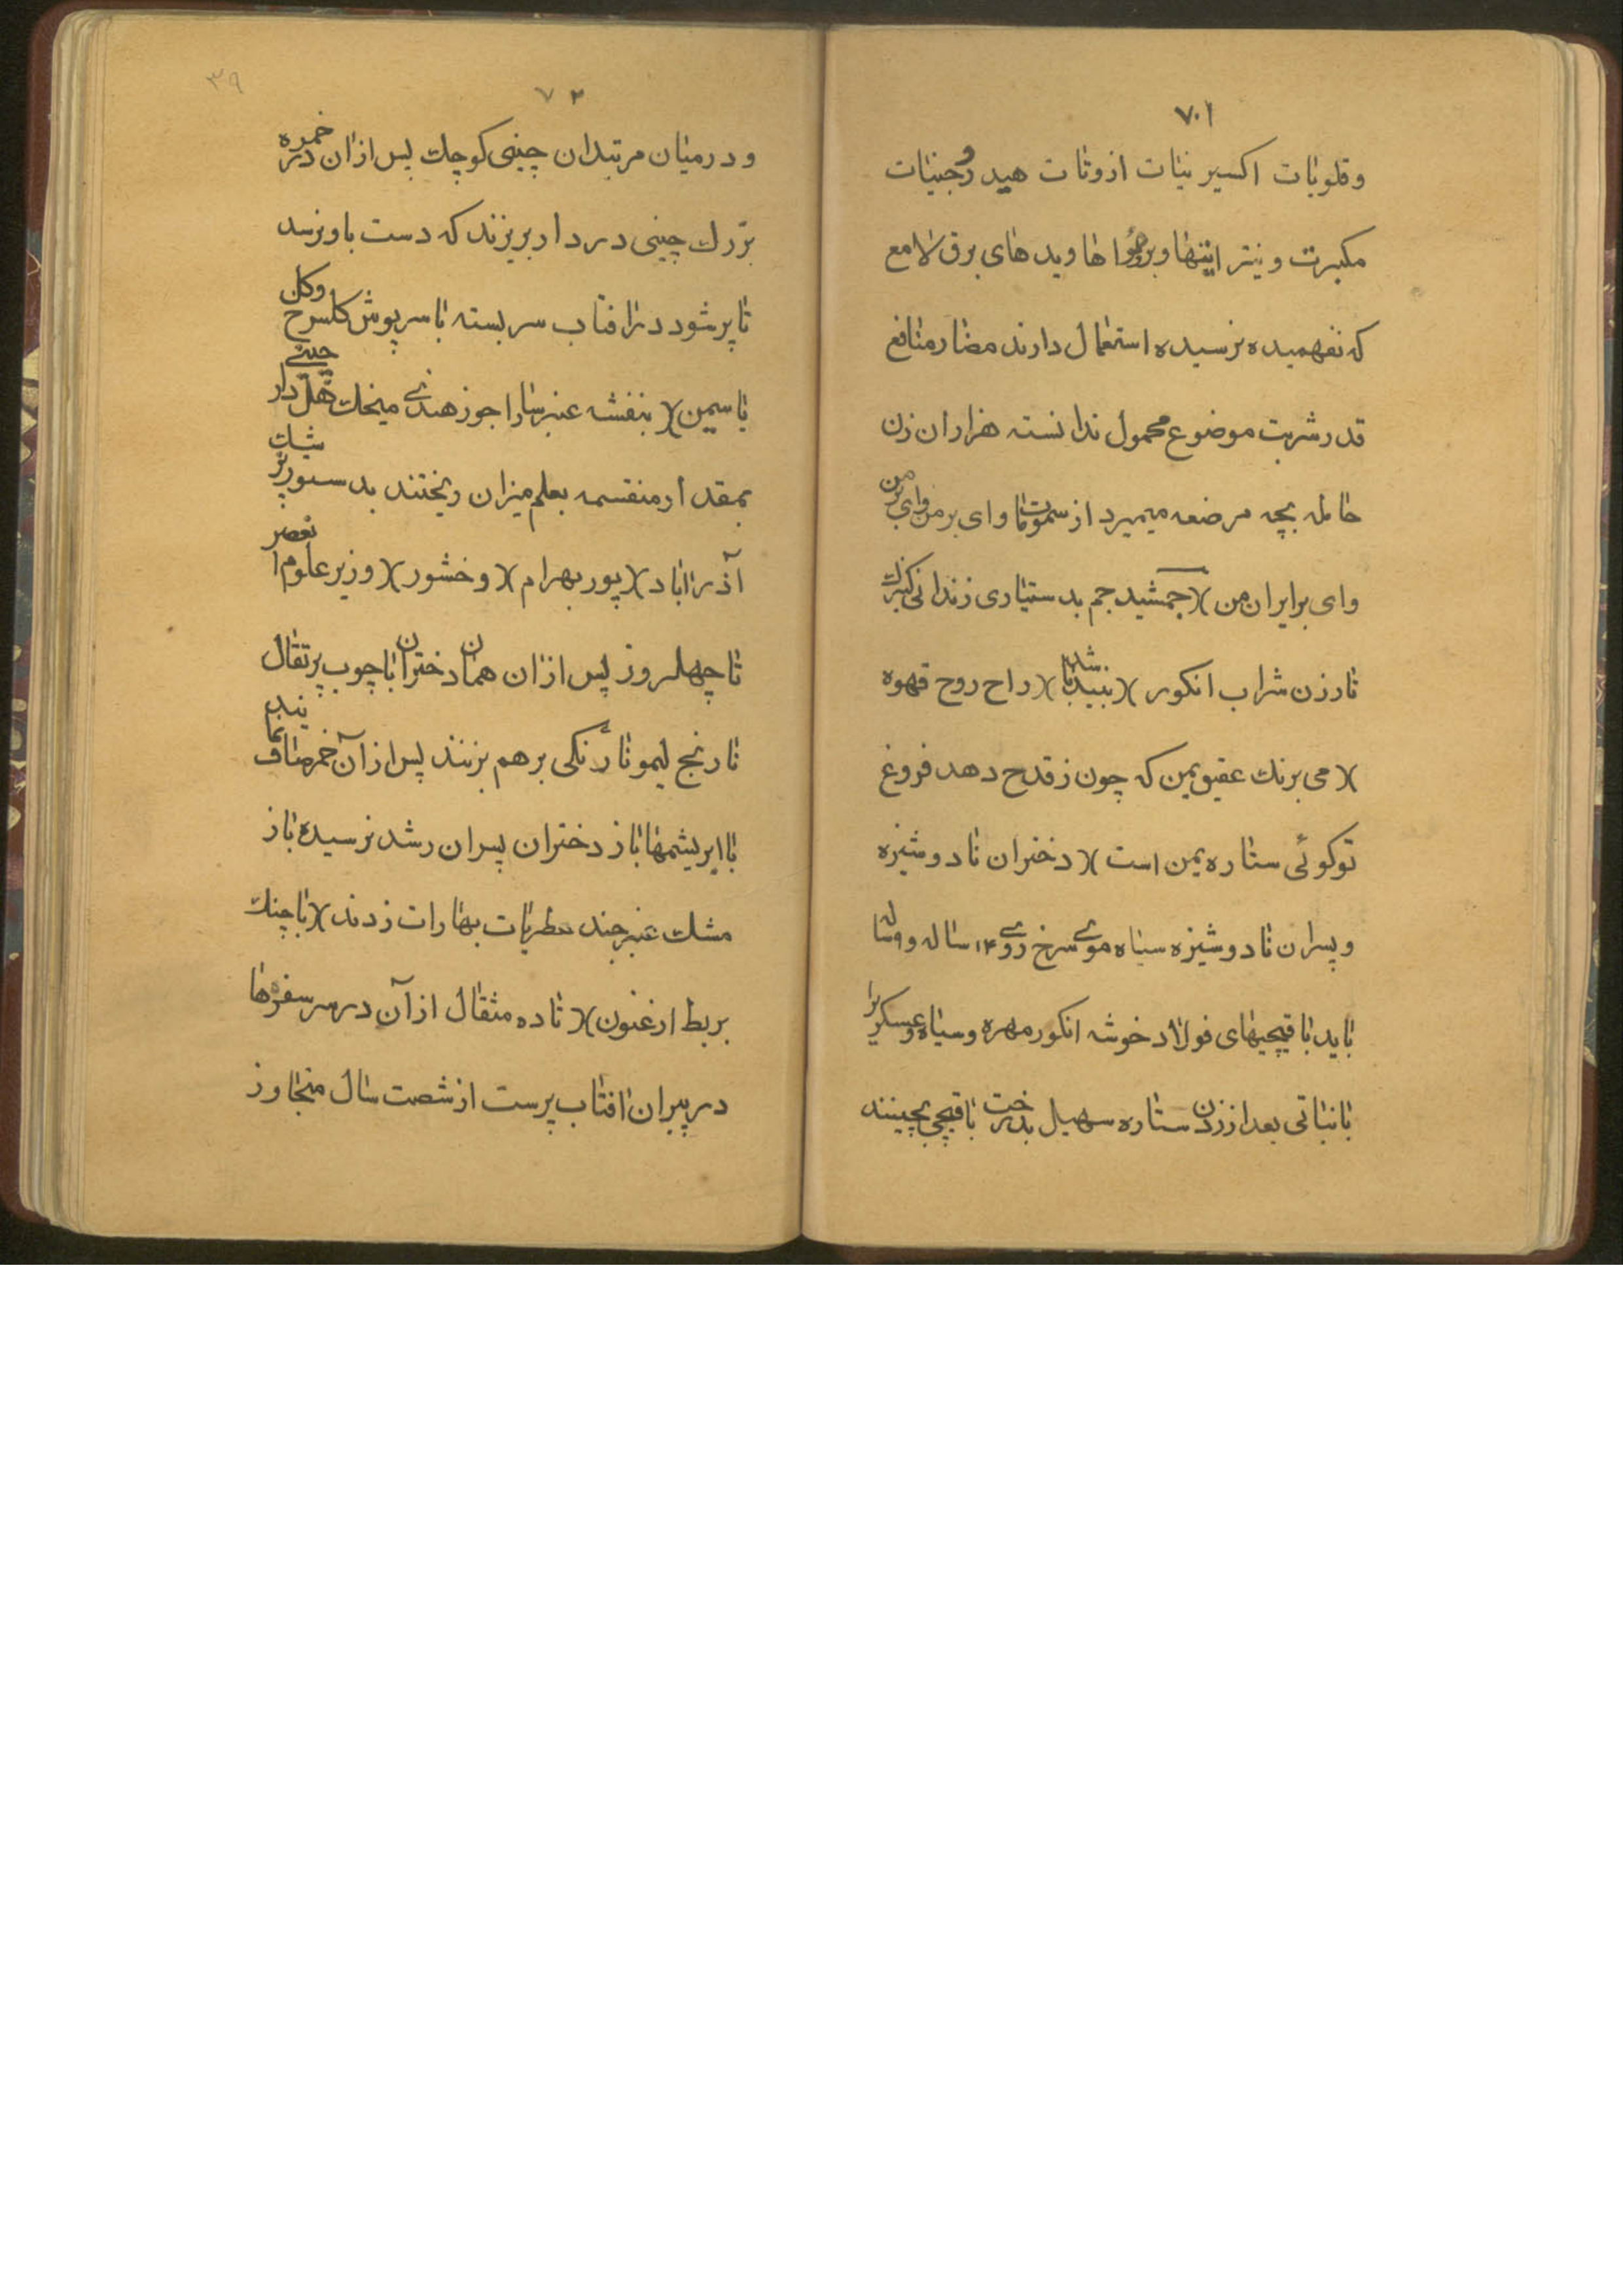 ۷۰۱
وقلویات اکسیر نیات ازوتات هیدرو وجنیات
مکبرت و نیتر اینها و برموها و یدهای برق لامع
که نفهمیده نرسیده استعمال دارند مضار منافع
قدر شربت موضوع محمول ندانسته هزاران زن
حامله بچه مرضعه میمیرد از سموات وای بر من وای بر من
وای بر ایران من )( جمشید جم بدستیاری زندانی کنیزک
تا رزن شراب انکور )( بنیید شد با )( راح روح قهوه
)( می برنك عقیق یمن که چون ز قدح دهد فروغ
توکوئی ستاره یمن است )( دختران نا دوشیزه
و پسران نا دوشیزه سیاه موی سرخ روی ۱۴ ساله و ۹ ساله
باید با قیچیهای فولاد خوشه انکور مهره و سیاه و عسکری را
با نباتی بعد از زدن ستاره سهیل بدرخت با قیچی بچینند
۳۹
۷۲
و در میان مرتبدان چینی کوچك پس از ان در خمره
بزرك چینی دردار بریزند که دست باو نرسد
تا پر شود در افتاب سر بسته با سرپوش کلسرخ وکل
یاسمین )( بنفشه عنبر سارا جوز هندی میخك هل دار چینی
بمقدار منقسمه بعلم میزان ریختند بدستور
آذراباد )( پور بهرام )( وخشور )( وزیر علوم
تا چهلروز پس از ان همان دختران با چوب پرتقال
نارنج لیمو نارنکی بر هم بزنند پس از آن خمر صاف
با ابریشمها باز دختران پسران رشد نرسیده باز
مشك عنبر چند عطریات بهارات زدند )( با چنك
بربط ارغنون )( تا ده مثقال از آن در سر سفرهها
در پیران افتاب پرست از شصت سال متجاوز